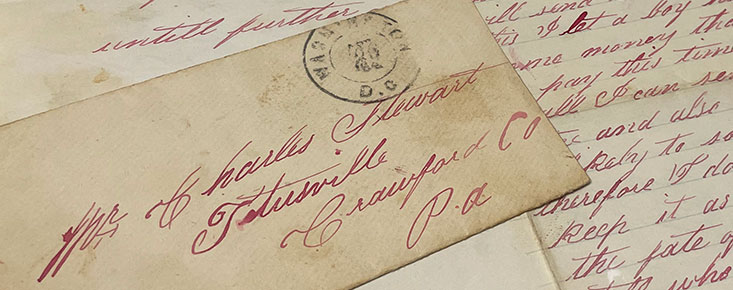 untill further
WASHINGTON
D.C
Mr Charles Stewart
Titusville
Crawford Co
P.a
will send
I let a boy ha
me money tha
pay this time
I can sen
and also
likely to so
therefore I do
keep it as
the fate of
who